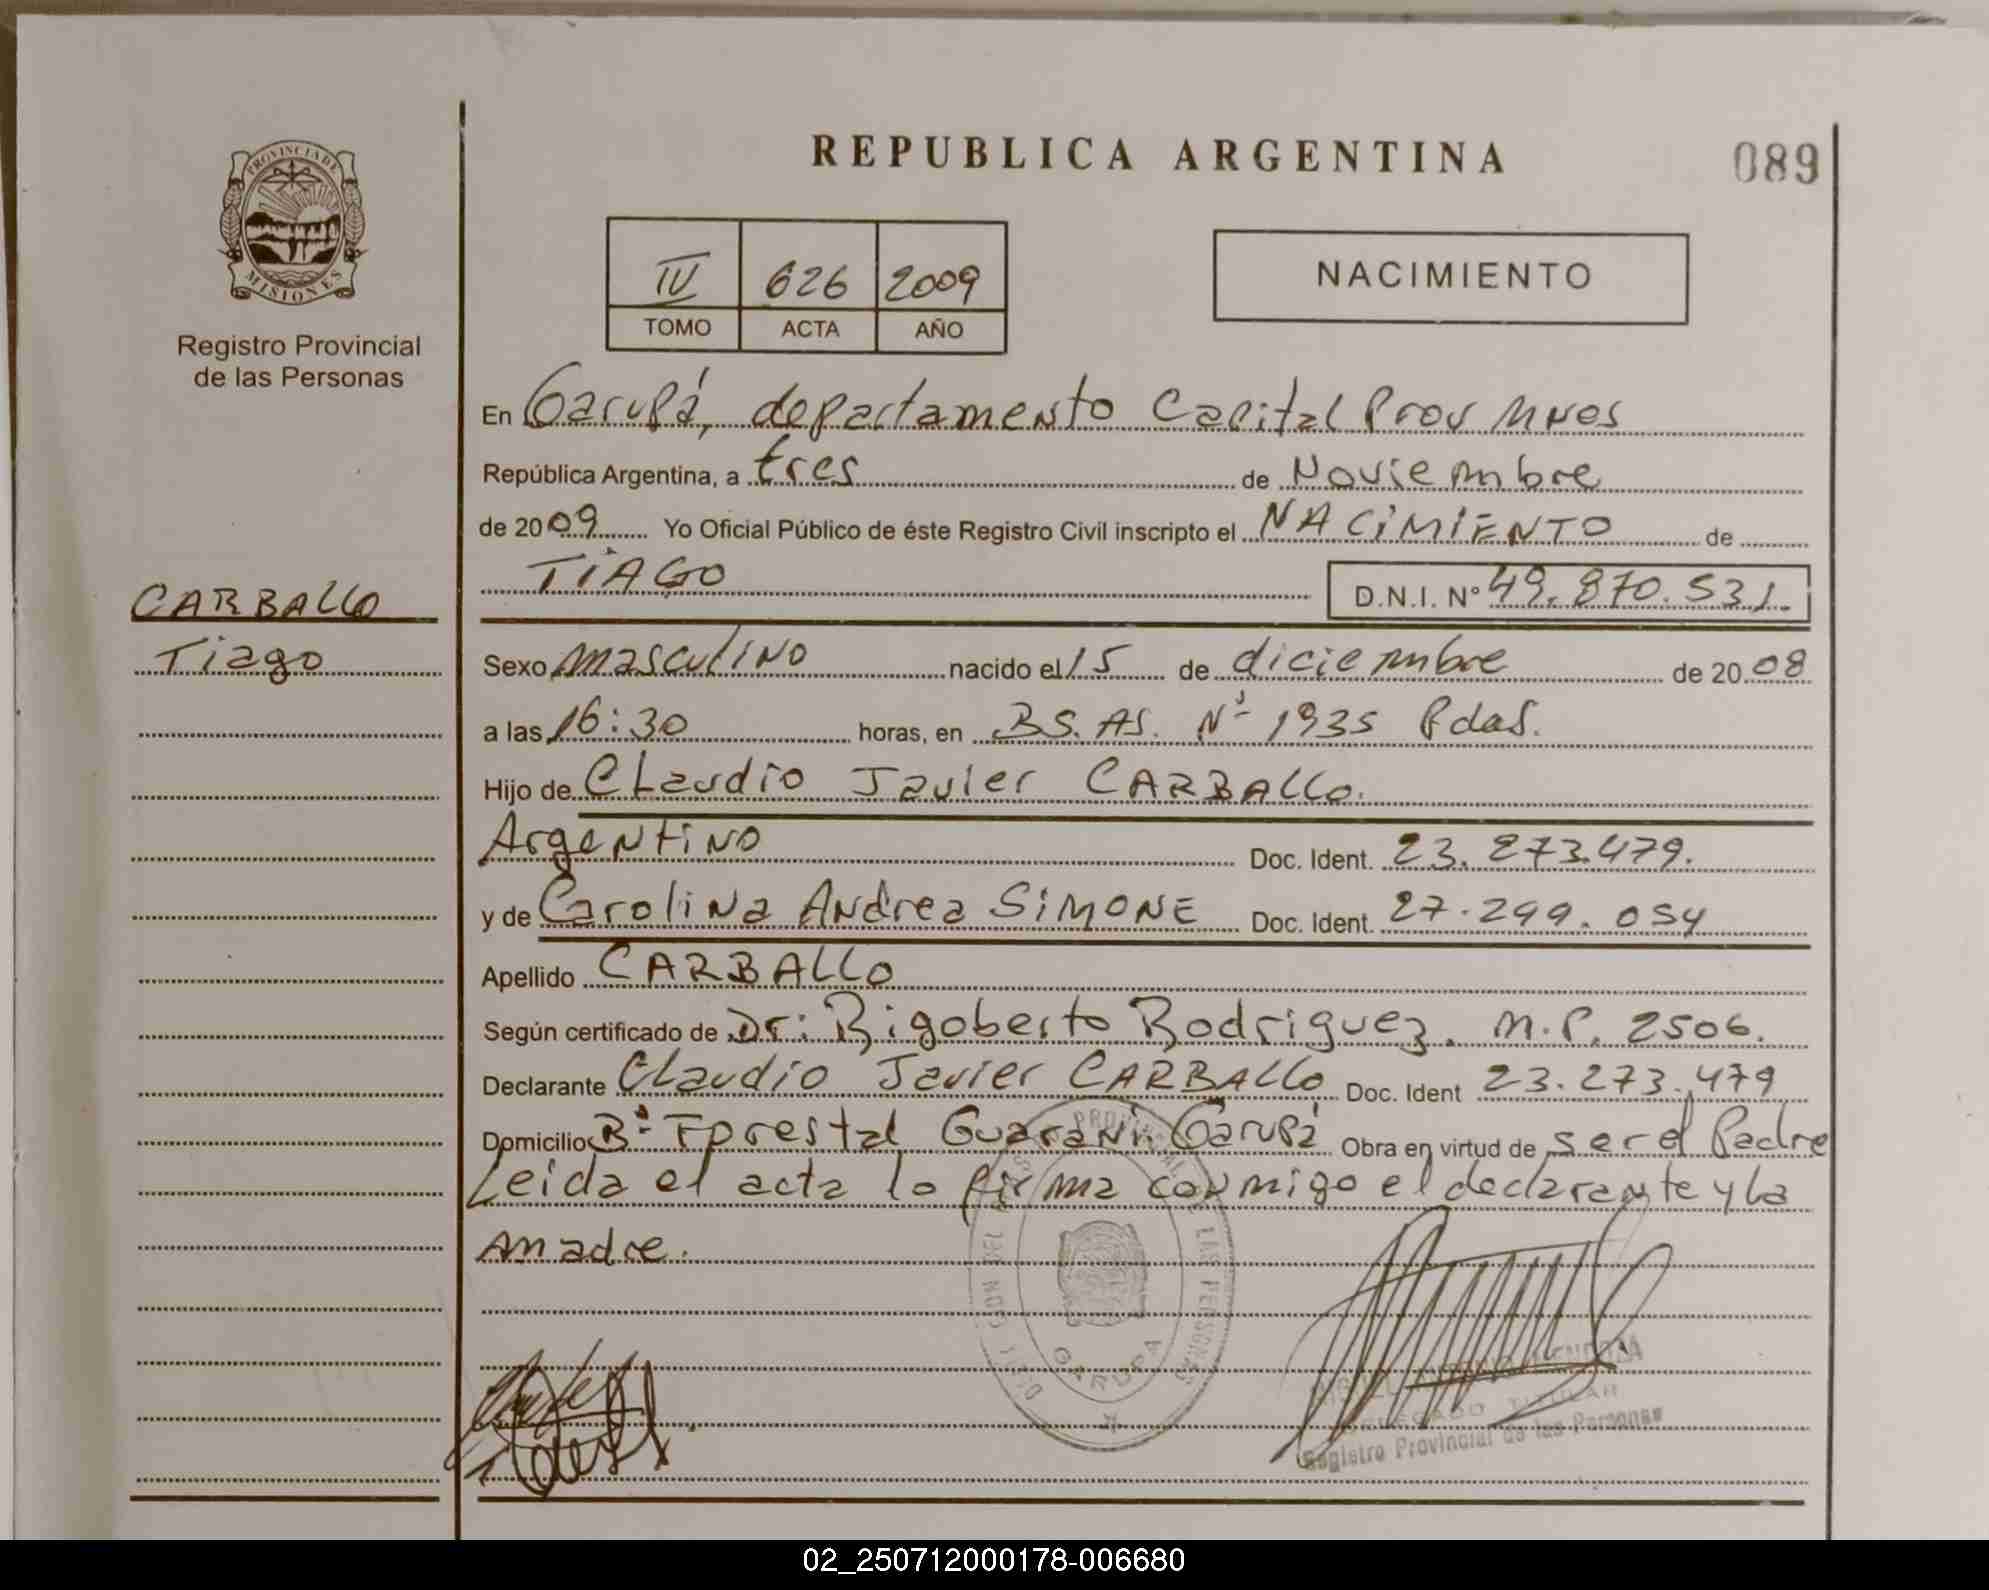 REPUBLICA ARGENTINA
089
PROVINCIA DE
MISIONES
Registro Provincial
de las Personas
IV 626 2009
TOMO ACTA AÑO
NACIMIENTO
En Garupá, departamento Capital Prov Mnes
República Argentina, a tres de Noviembre
de 2009 Yo Oficial Público de éste Registro Civil inscripto el NACIMIENTO de
TIAGO D.N.I. N° 49.870.531.
CARBALLO
Tiago
Sexo masculino nacido el 15 de diciembre de 2008
a las 16:30 horas, en BS. AS. Nº 1935 Pdas.
Hijo de Claudio Javier CARBALLO.
Argentino Doc. Ident. 23.273.479.
y de Carolina Andrea SIMONE Doc. Ident. 27.299.054
Apellido CARBALLO
Según certificado de Dr: Rigoberto Rodriguez. M.P. 2506.
Declarante Claudio Javier CARBALLO Doc. Ident 23.273.479
Domicilio Bº Forestal Guaraní Garupá Obra en virtud de ser el Padre
Leida el acta lo firma conmigo el declarante y la
madre.
GARUPA
DELEGADO TITULAR
Registro Provincial de las Personas
02_250712000178-006680